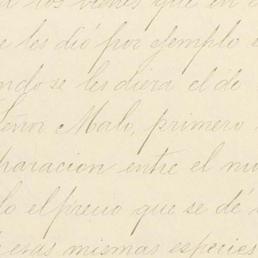 los bienes que en
les dió por ejemplo
se les diera el de
Señor Malo, primero
paracion entre el
el precio que se dé
estas mismas especies